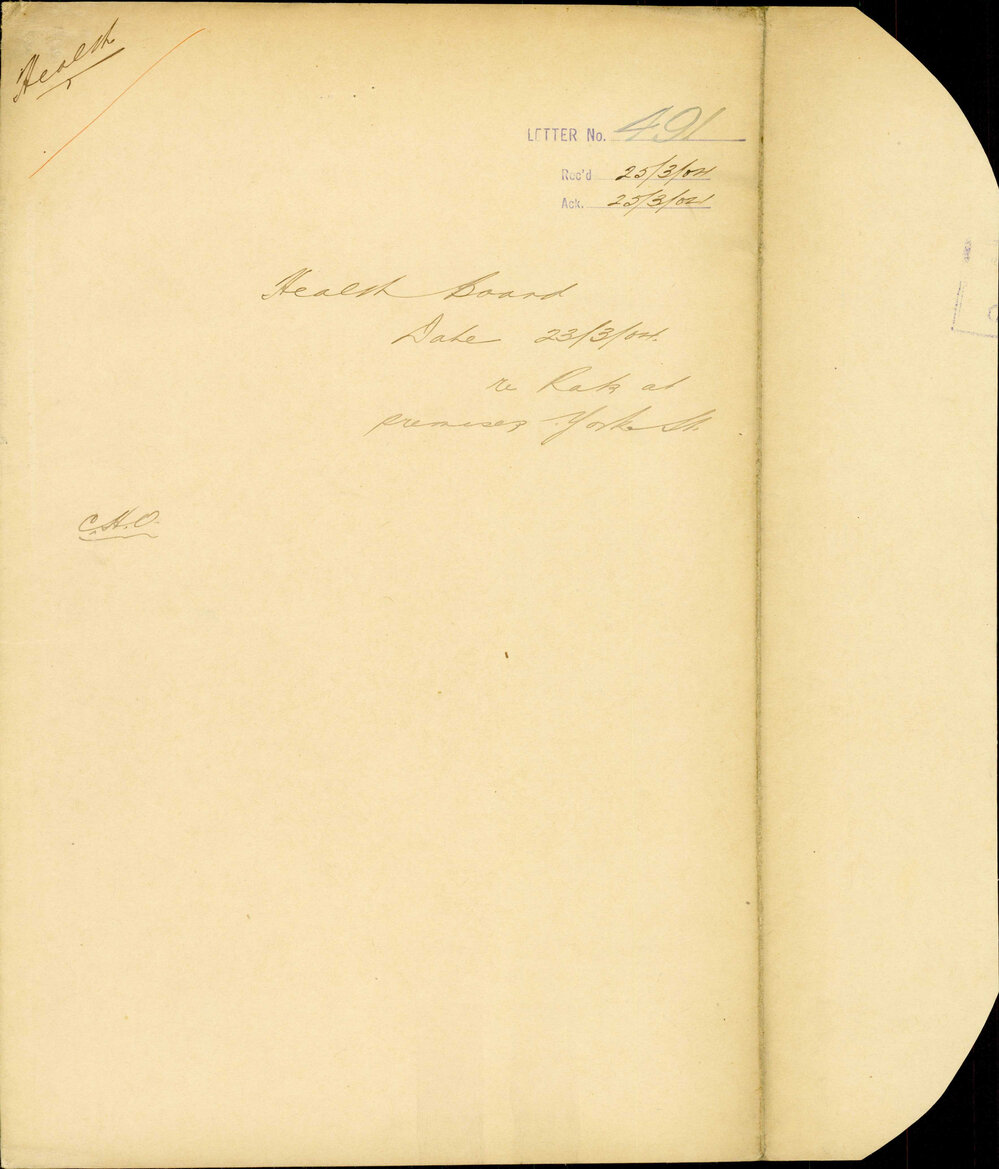 Health
LETTER No. 491
Rec'd 25/3/04
Ack. 25/3/04
Health Board
Date 23/3/04.
re Rats at
premises York St.
C.H.O.